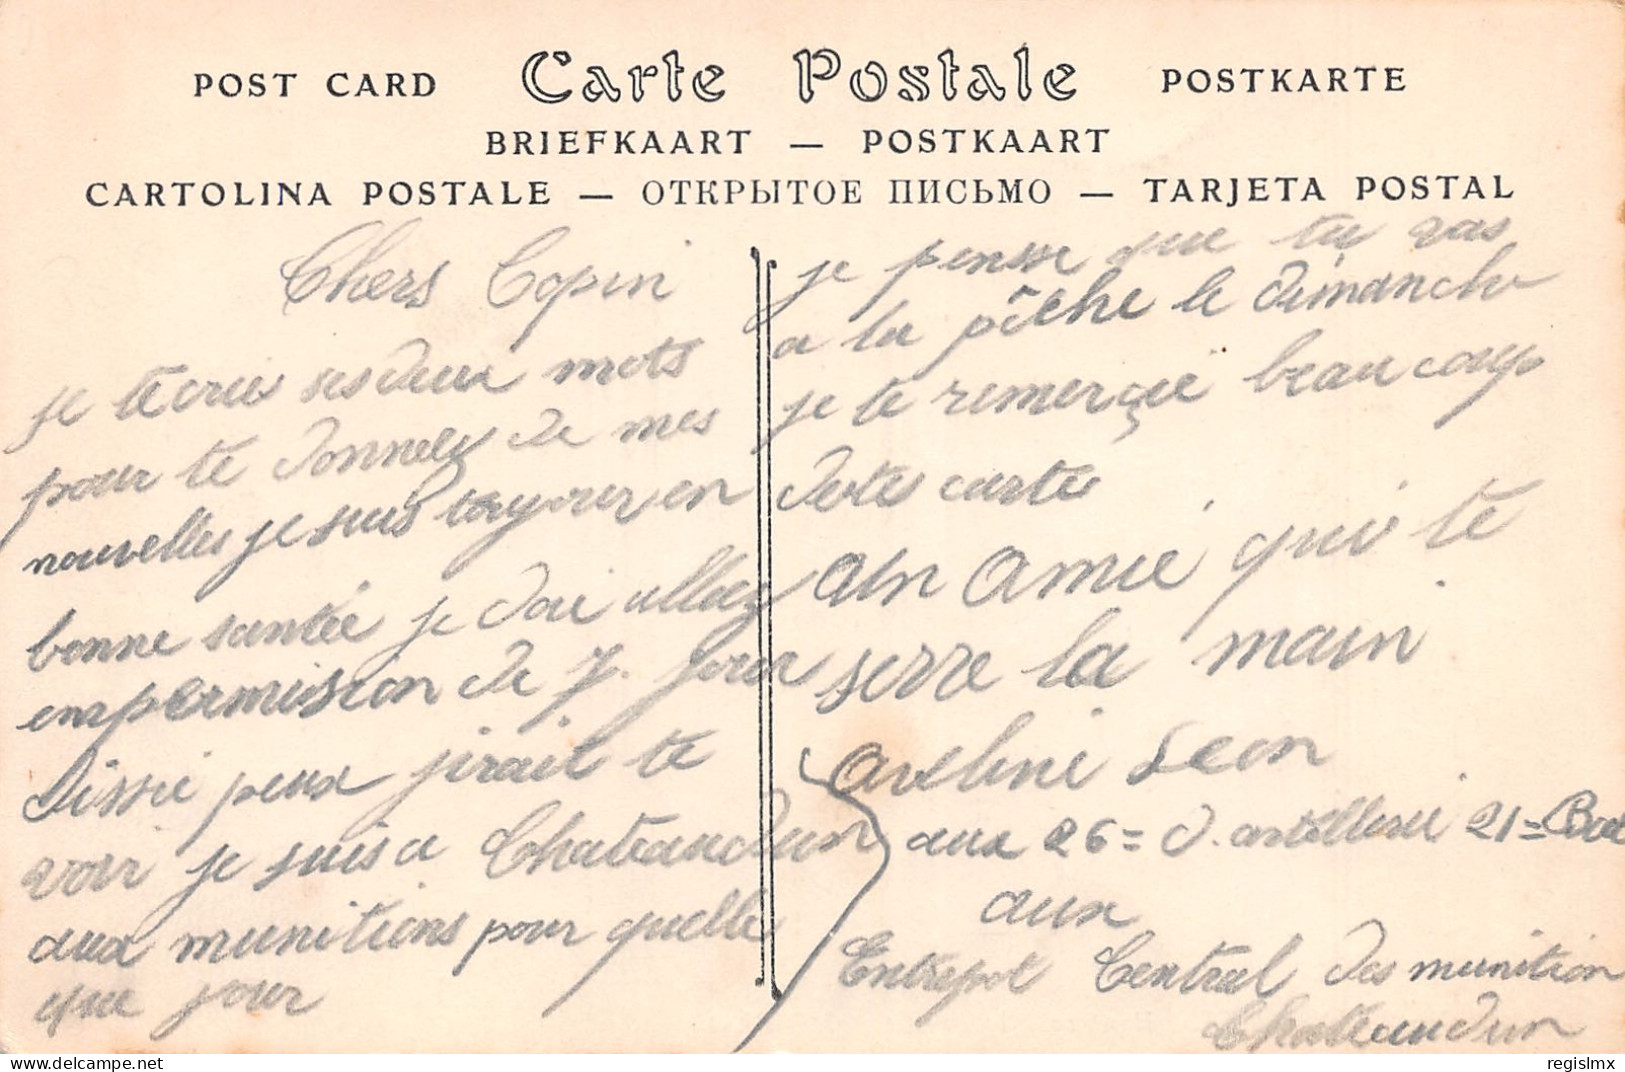 POST CARD Carte Postale POSTKARTE
BRIEFKAART — POSTKAART
CARTOLINA POSTALE — ОТКРЫТОЕ ПИСЬМО — TARJETA POSTAL
Chers Copin
je tecrie ses deux mots
pour te donnely de mes
nouvelles je suis toujour en
bonne santée je doi allez
enpermision de 7. jour
Sissie peux jirait te
voir je suis a Chateaudun
aux munitions pour quelle
que jour
je pensse que tu vas
a la pêche le dimanche
je te remerçie beaucoup
detes cartes
un amie qui te
serre la main
Aveline Leon
aux 26= d. artillerie 21= Bat
aux
Entrepot Central des munition
Chateaudun
delcampe.net
regislmx